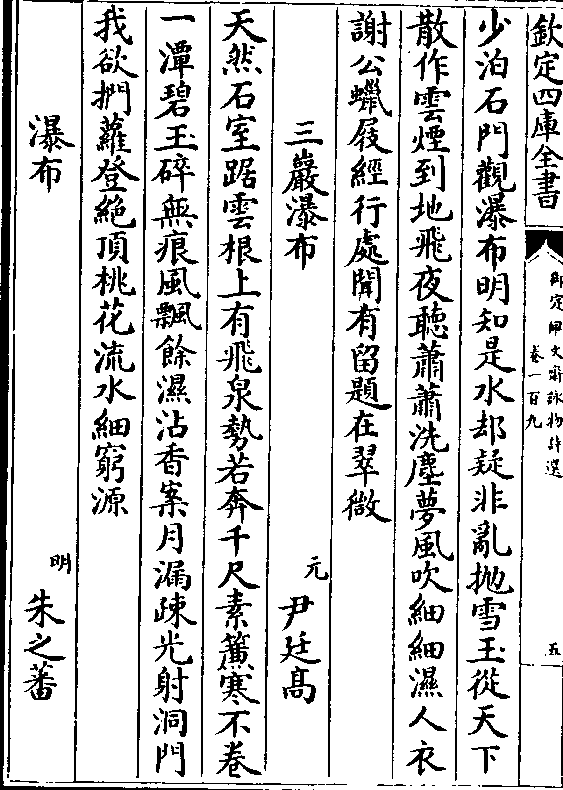 欽定四庫全書
御定佩文齋詠物詩選
卷一百九
五
少泊石門觀瀑布明知是水却疑非亂抛雪玉從天下
散作雲煙到地飛夜聽蕭蕭洗塵夢風吹細細濕人衣
謝公蠟屐經行處聞有留題在翠微
三巖瀑布
元
尹廷髙
天然石室踞雲根上有飛泉勢若奔千尺素簾寒不卷
一潭碧玉碎無痕風飄餘濕沾香案月漏疎光射洞門
我欲捫蘿登絶頂桃花流水細窮源
瀑布
明
朱之蕃